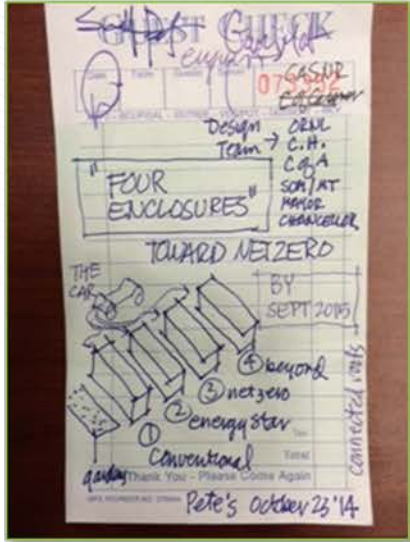 GUEST CHECK
Date Table Guests Server
073992
Design
Team → ORNL
C.H.
C of A
SOM/MT
MAYOR
CHANCELLOR
"FOUR
ENCLOSURES"
TOWARD NETZERO
BY
SEPT 2015
THE
CAR
④ beyond
③ netzero
② energy star
①
Conventional
garden
connected roofs
Tax
Total
Thank You - Please Come Again
Pete's October 23 '14